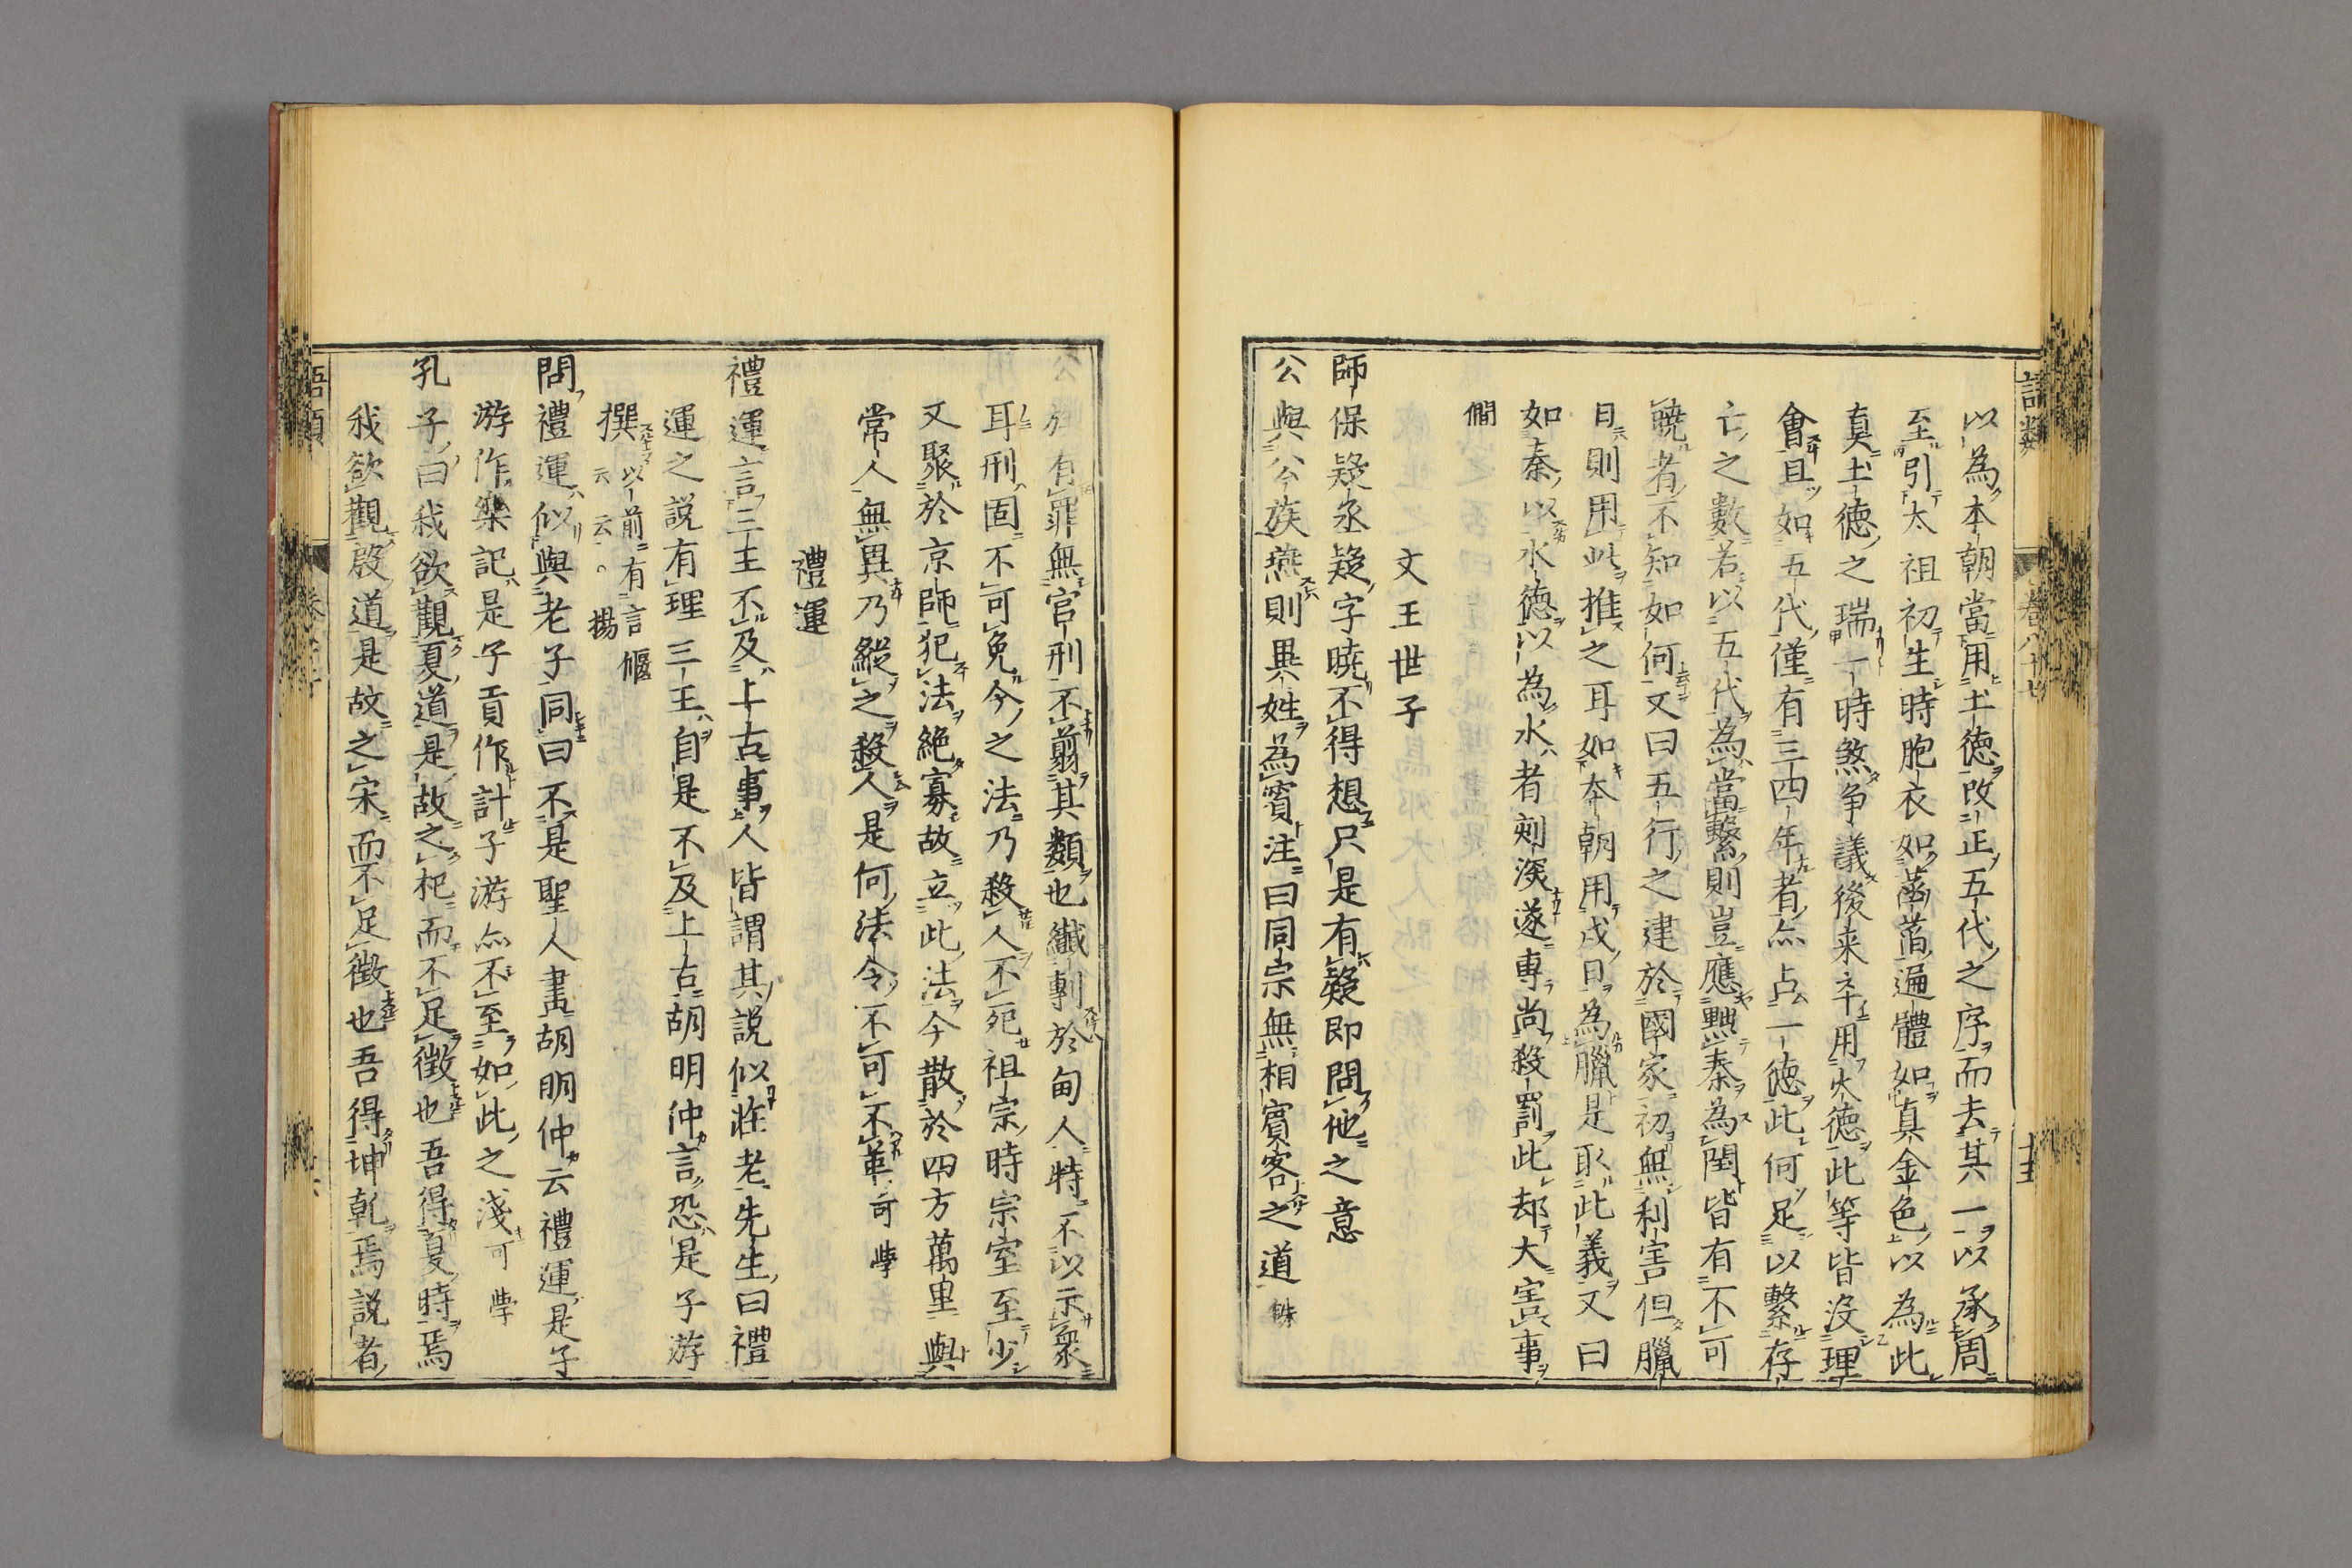 語類 卷八十七 十五
以為本朝當用土徳改正五代之序而去其一以承周
至引太祖初生時胞衣如菡萏遍體如真金色以為此
真土徳之瑞一時煞争議後来卒用火徳此等皆沒理
會且如五代僅有三四年者亦占一徳此何足以繫存
亡之數若以五代為當繫則豈應黜秦為閏皆有不可
曉者不知如何又曰五行之建於國家初無利害但臘
日則用此推之耳如本朝用戌日為臘是取此義又曰
如秦以水徳以為水者刻深遂專尚殺罰此却大害事
僩
文王世子
師保疑丞疑字曉不得想只是有疑即問他之意
公與公族燕則異姓為賓注曰同宗無相賓客之道 銖
公族有罪無宮刑不翦其類也纖剸於甸人特不以示衆
耳刑固不可免今之法乃殺人不死祖宗時宗室至少
又聚於京師犯法絶寡故立此法今散於四方萬里與
常人無異乃縱之殺人是何法令不可不革 可學
禮運
禮運言三王不及上古事人皆謂其説似莊老先生曰禮
運之説有理三王自是不及上古胡明仲言恐是子游
撰 以前有言偃云云。 揚
問禮運似與老子同曰不是聖人書胡明仲云禮運是子
游作樂記是子貢作計子游亦不至如此之淺 可學
孔子曰我欲觀夏道是故之杞而不足徴也吾得夏時焉
我欲觀殷道是故之宋而不足徴也吾得坤乾焉説者
語類